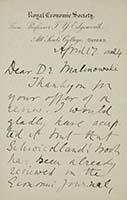 Royal Economic Society.
From Professor F. Y. Edgeworth.
All Souls College, Oxford.
April 17 1924
Dear Dr Malinowski
Thank you for
your offer of a
review. I would
gladly have accep-
ted it but that
Schwiedland's book
has been already
reviewed in the
Economic Journal,